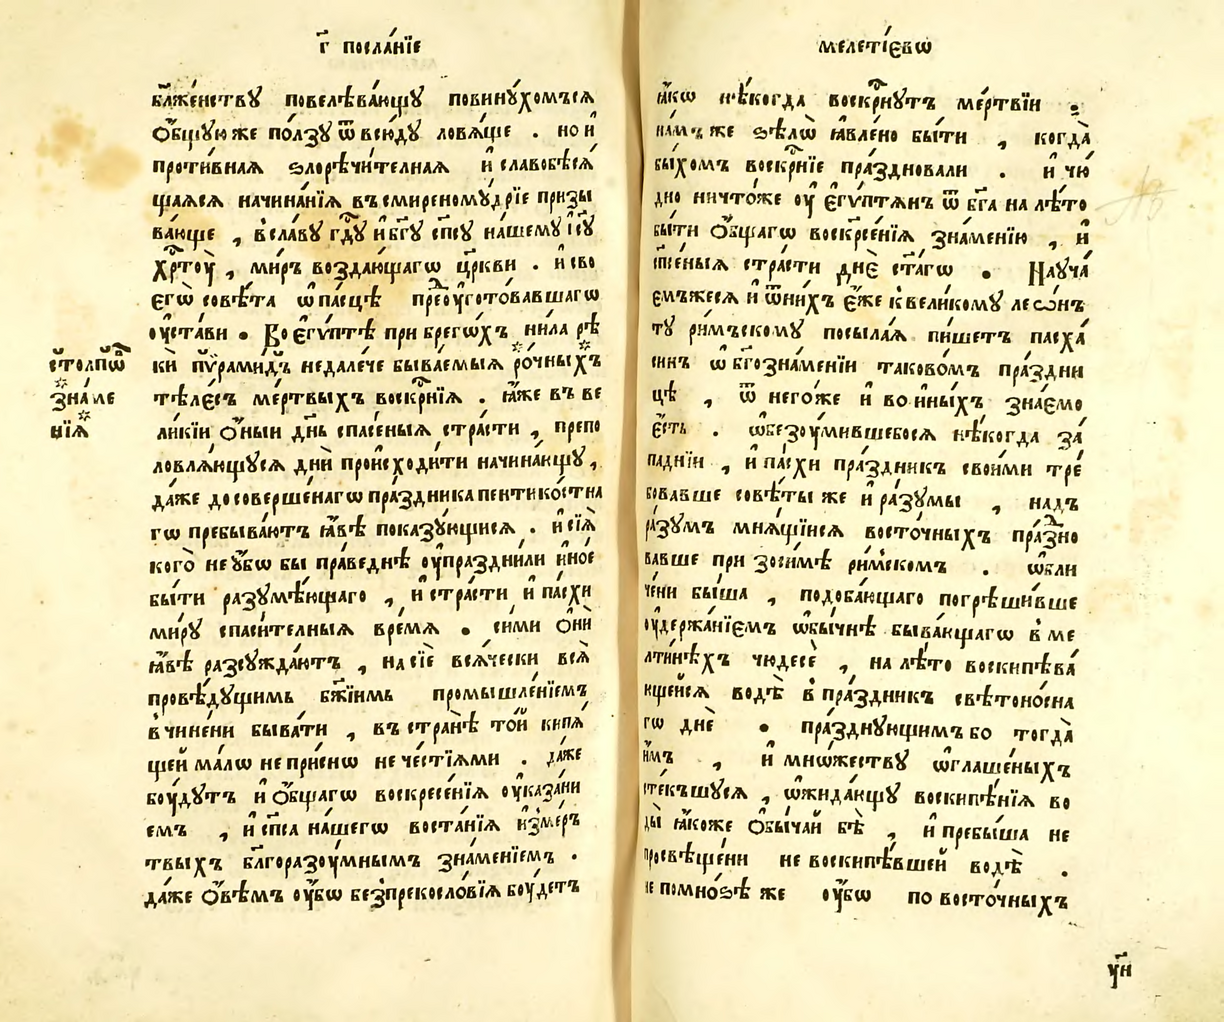 г҃ посла́нїе
бл҃же́нствꙋ повелѣва́ющꙋ повинꙋ́хомъсѧ
ѻ҆́бщꙋю же по́лзꙋ ѿ всю́дꙋ ловѧ́ще . но и҆
проти́внаѧ ѕлорѣчи́телнаѧ и҆ славобѣсѧ́
щаѧсѧ начина́нїѧ въ смиреномꙋ́дрїе призы
ва́юще , в̾ сла́вꙋ гд҇ꙋ и҆ бг҃ꙋ сп҃сꙋ на́шемꙋ і҆сꙋ
хрⷭ҇тоу҆̀ , ми́ръ воздаю́щагѡ цр҃кви . и҆ сво
егѡ̀ совѣ́та ѡ҆ па́сцѣ преоу҆гото́вавшагѡ
оу҆ста́ви . Во є҆гѵ́птѣ при брегѡ́хъ ни́ла рѣ
ки́ пѷрами́дъ недале́че быва́емыѧ ро́чныхъ
тѣле́съ ме́ртвыхъ воскрⷭ҇нїѧ . ꙗ҆́же въ ве
ли́кїи ѻ҆́ныи дн҃ь спасе́ныѧ стра́сти , препо
ловлѧ́ющꙋсѧ дни́ происходи́ти начина́ющꙋ ,
да́же до соверше́нагѡ пра́здника пентико́стна
гѡ пребыва́ютъ ꙗ҆́вѣ показꙋ́ющисѧ . и҆ сїѧ̀
кого̀ не ᲂу҆́бѡ бы пра́веднѣ оу҆праздни́ли и҆но́е
бы́ти разꙋмѣ́ющаго , и҆ стра́сти и҆ па́схи
ми́рꙋ спаси́телныѧ вре́мѧ . си́ми ѻ҆нѝ
ꙗ҆́вѣ разсꙋжда́ютъ , на сїѐ всѧ́чески всѧ̀
провѣ́дꙋщимь бж҃їимь промышле́нїемъ
в̾чине́ни быва́ти , въ странѣ̀ то́й кипѧ́
щей ма́лѡ не при́снѡ нече́стїѧми . да́же
боу́дꙋтъ и҆ ѻ҆́бщагѡ воскресе́нїѧ оу҆каза́ни
емъ , и҆ сп҃са на́шегѡ воста́нїѧ и҆з̾ме́р
твыхъ бл҃горазоу́мнымъ зна́менїемъ .
да́же ѻ҆вѣ́мъ ᲂу҆́бѡ безпрекосло́вїѧ боу́детъ
столпѡ́въ
зна́ме
нїѧ
меле́тїєвѡ
ꙗ҆́кѡ нѣ́когда воскрⷭ҇нꙋтъ ме́ртвїи :
на́мъ же ѕѣлѡ̀ ꙗ҆влено бы́ти , когда̀
бы́хомъ воскрⷭ҇нїе пра́здновали . и҆ чю́
дно ничто́же оу҆ є҆гѵ́птѧнъ ѿ бг҃а на лѣ́то
бы́ти ѻ҆́бщагѡ воскресе́нїѧ зна́менїю , и҆
сп҃се́ныѧ стра́сти днѐ ст҃а́гѡ . Наꙋча́
емъжесѧ и҆ ѿ ни́хъ є҆́же к̾вели́комꙋ леѡ́нъ
тꙋ ри́мъскомꙋ посыла́ѧ пи́шетъ пасха́
синъ ѡ҆ бг҃озна́менїи таково́мъ пра́здни
цѣ , ѿ него́же и҆ во и҆ны́хъ зна́емо
є҆́сть . ѡ҆безоу́мившебосѧ нѣ́когда за́
паднїи , и҆ па́схи пра́здникъ свои́ми тре́
бовавше совѣ́ты же и҆ ра́зꙋмы , надъ
ра́зꙋмъ мнѧ́щїисѧ восто́чныхъ пра́здно
вавше при зоси́мѣ ри́мскомъ . ѡ҆бли
че́ни бы́ша , подоба́ющаго погрѣши́вше
оу҆держа́нїемъ ѡ҆бы́чнѣ быва́ющагѡ в̾ ме
лтинѣ́хъ чюдесѐ , на лѣ́то воскипѣва́
ющейсѧ водѣ̀ в̾ пра́здникъ свѣтоно́сна
гѡ днѐ . пра́зднꙋющимъ бо тогда̀
и҆́мъ , и҆ мно́жествꙋ ѡ҆глаше́ныхъ
сте́кшꙋсѧ , ѡ҆жида́ющꙋ воскипѣ́нїѧ во
ды̀ ꙗ҆́коже ѻ҆бы́чай бѣ̀ , и҆ пребы́ша не
просвѣще́ни не воскипѣ́вшей водѣ̀ .
не помно́ѕѣ же ᲂу҆́бѡ по восто́чныхъ
ун҃